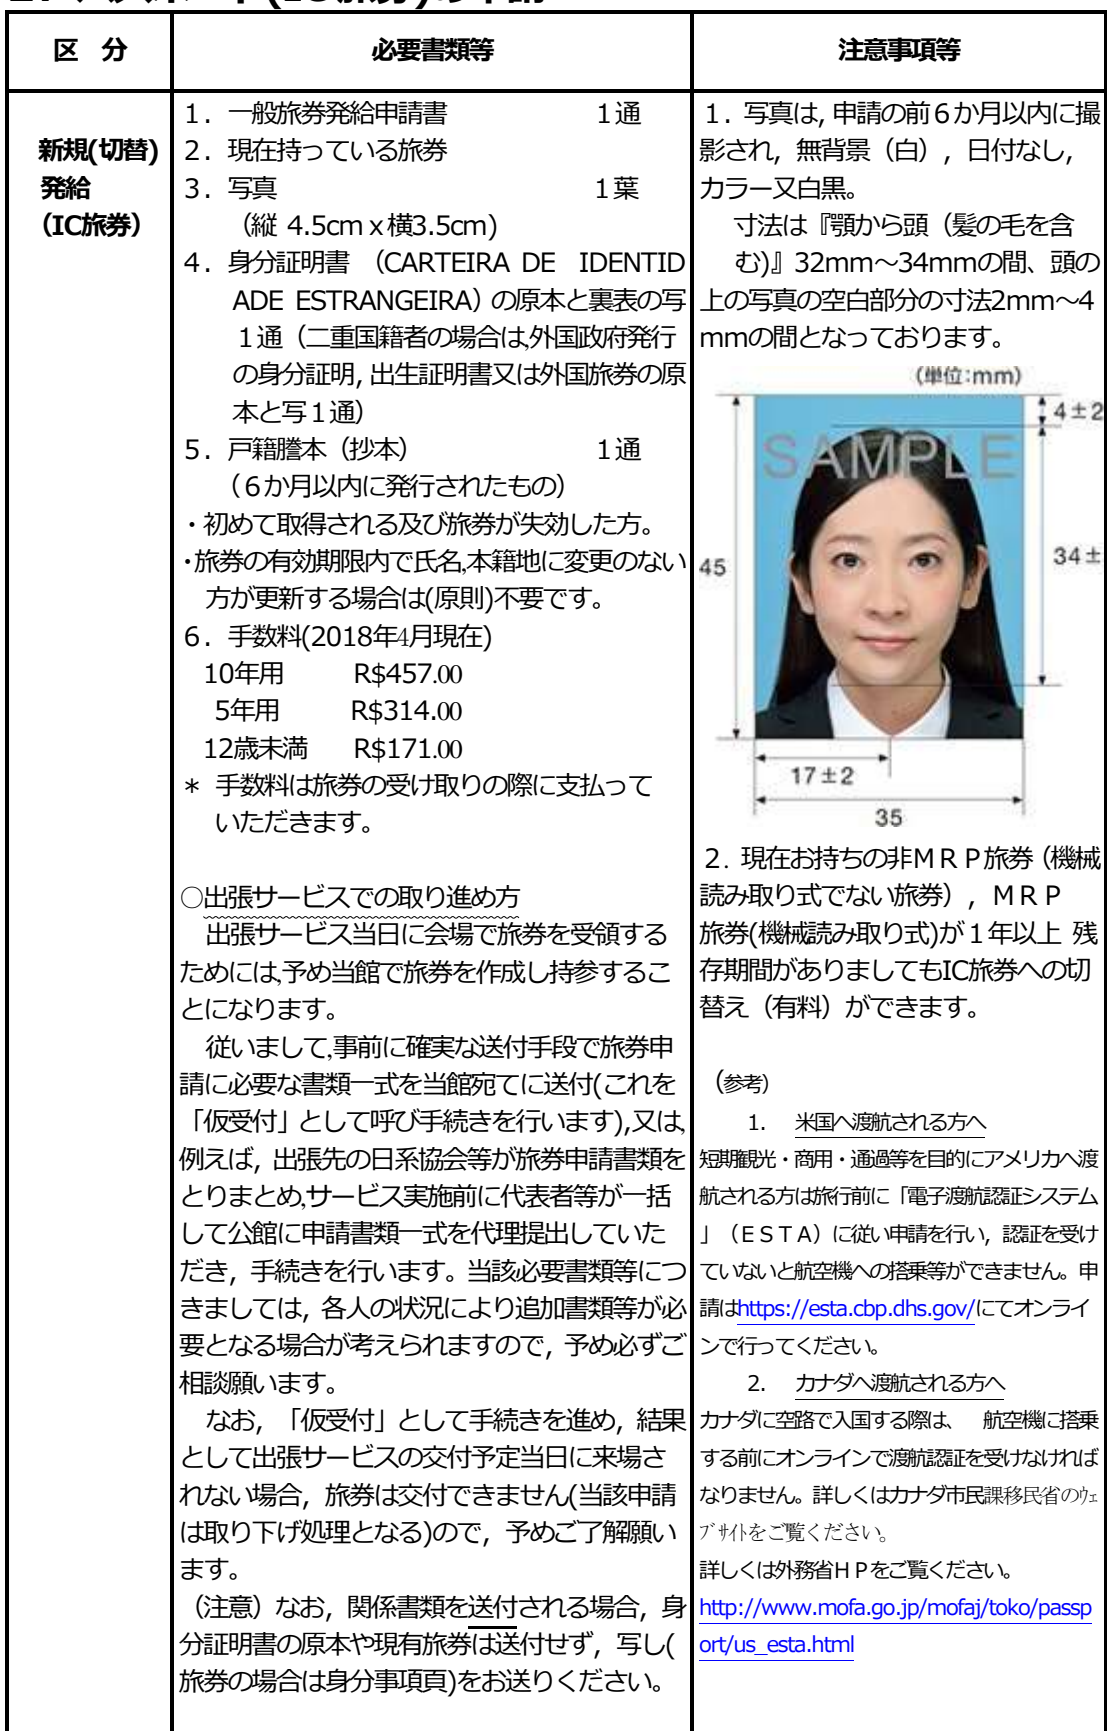 区　分
必要書類等
注意事項等
新規(切替)
発給
（IC旅券）
１．一般旅券発給申請書　　　　　　１通
２．現在持っている旅券
３．写真　　　　　　　　　　　　　１葉
（縦 4.5cm x 横3.5cm)
４．身分証明書　（CARTEIRA DE　IDENTID
ADE ESTRANGEIRA）の原本と裏表の写
１通（二重国籍者の場合は,外国政府発行
の身分証明, 出生証明書又は外国旅券の原
本と写１通）
５．戸籍謄本（抄本）　　　　　　　１通
（６か月以内に発行されたもの）
・初めて取得される及び旅券が失効した方。
・旅券の有効期限内で氏名,本籍地に変更のない
方が更新する場合は(原則)不要です。
６．手数料(2018年4月現在)
10年用　　　R$457.00
5年用　　　R$314.00
12歳未満　　R$171.00
＊ 手数料は旅券の受け取りの際に支払って
いただきます。
○出張サービスでの取り進め方
出張サービス当日に会場で旅券を受領する
ためには,予め当館で旅券を作成し持参するこ
とになります。
従いまして,事前に確実な送付手段で旅券申
請に必要な書類一式を当館宛てに送付(これを
「仮受付」として呼び手続きを行います),又は,
例えば，出張先の日系協会等が旅券申請書類を
とりまとめ,サービス実施前に代表者等が一括
して公館に申請書類一式を代理提出していた
だき，手続きを行います。当該必要書類等につ
きましては，各人の状況により追加書類等が必
要となる場合が考えられますので，予め必ずご
相談願います。
なお，「仮受付」として手続きを進め，結果
として出張サービスの交付予定当日に来場さ
れない場合，旅券は交付できません(当該申請
は取り下げ処理となる)ので，予めご了解願い
ます。
（注意）なお，関係書類を送付される場合，身
分証明書の原本や現有旅券は送付せず，写し(
旅券の場合は身分事項頁)をお送りください。
１．写真は, 申請の前６か月以内に撮
影され，無背景（白），日付なし，
カラー又白黒。
寸法は『顎から頭（髪の毛を含
む)』32mm～34mmの間、頭の
上の写真の空白部分の寸法2mm～4
mmの間となっております。
（単位:mm）
4±2
SAMPLE
45
34±
17±2
35
２. 現在お持ちの非ＭＲＰ旅券（機械
読み取り式でない旅券），ＭＲＰ
旅券(機械読み取り式)が１年以上 残
存期間がありましてもIC旅券への切
替え（有料）ができます。
（参考）
1.　米国へ渡航される方へ
短期観光・商用・通過等を目的にアメリカへ渡
航される方は旅行前に「電子渡航認証システム
」（ＥＳＴＡ）に従い申請を行い，認証を受け
ていないと航空機への搭乗等ができません。申
請はhttps://esta.cbp.dhs.gov/にてオンライ
ンで行ってください。
2.　カナダへ渡航される方へ
カナダに空路で入国する際は、　航空機に搭乗
する前にオンラインで渡航認証を受けなければ
なりません。詳しくはカナダ市民課移民省のｳｪ
ﾌﾞｻｲﾄをご覧ください。
詳しくは外務省ＨＰをご覧ください。
http://www.mofa.go.jp/mofaj/toko/passp
ort/us_esta.html